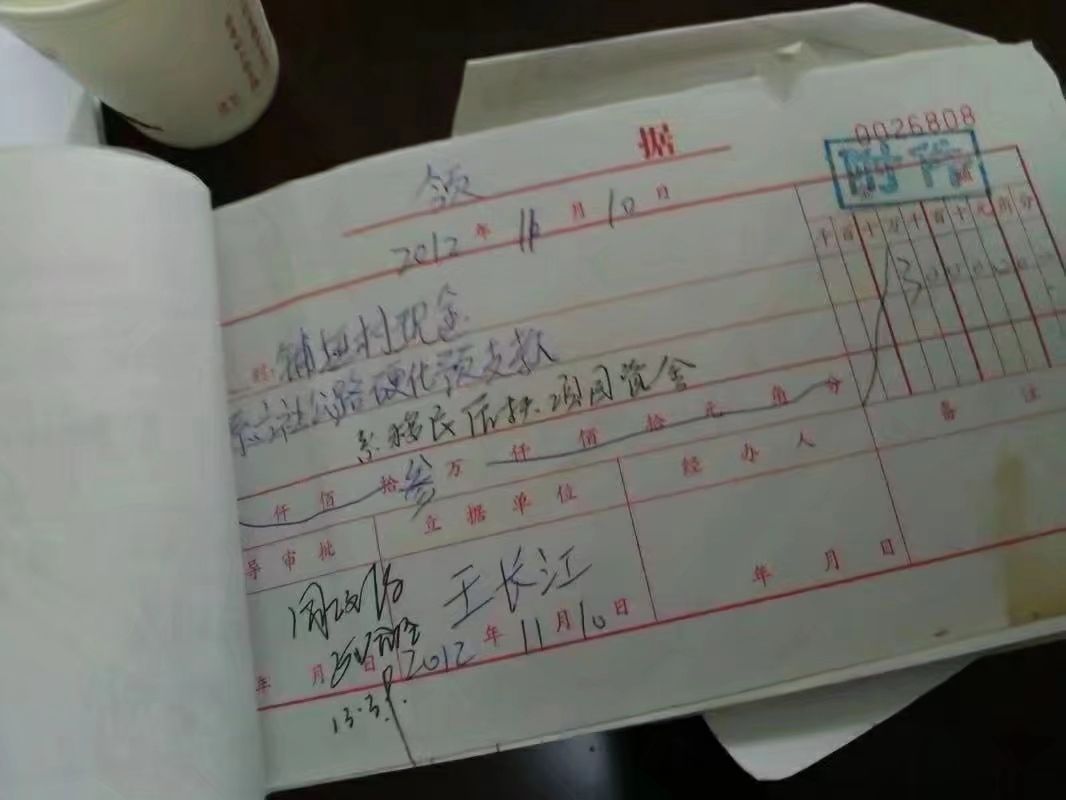 0026808
领 据
附件
2012 年 11 月 10 日
千 百 十 万 千 百 十 元 角 分
3
铺 村现金
六社公路硬化预支款
系移民后扶项目资金
仟 佰 拾 叁 万 仟 佰 拾 元 角 分
导 审 批 立 据 单 位 经 办 人 备 注
王长江
年 月 日 2012 年 11 月 10 日 年 月 日
13.3.9.